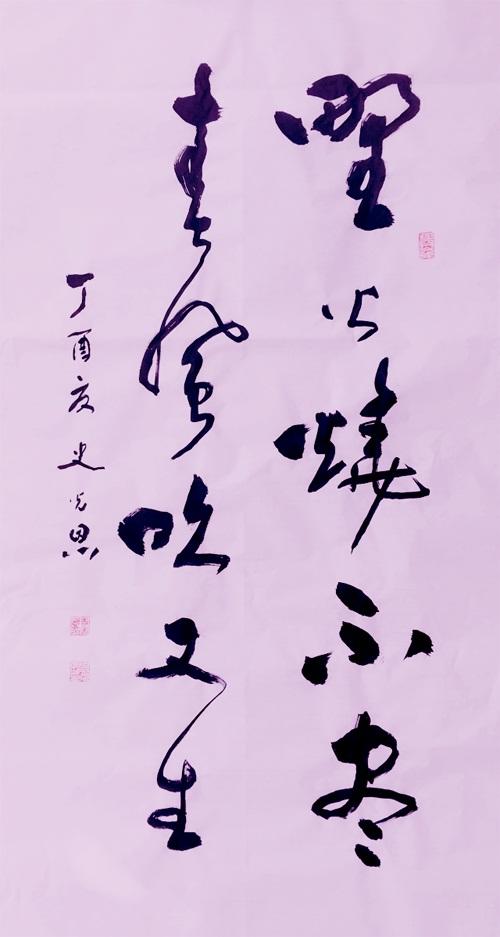 野火燒不尽
春风吹又生
丁酉夏 史光思